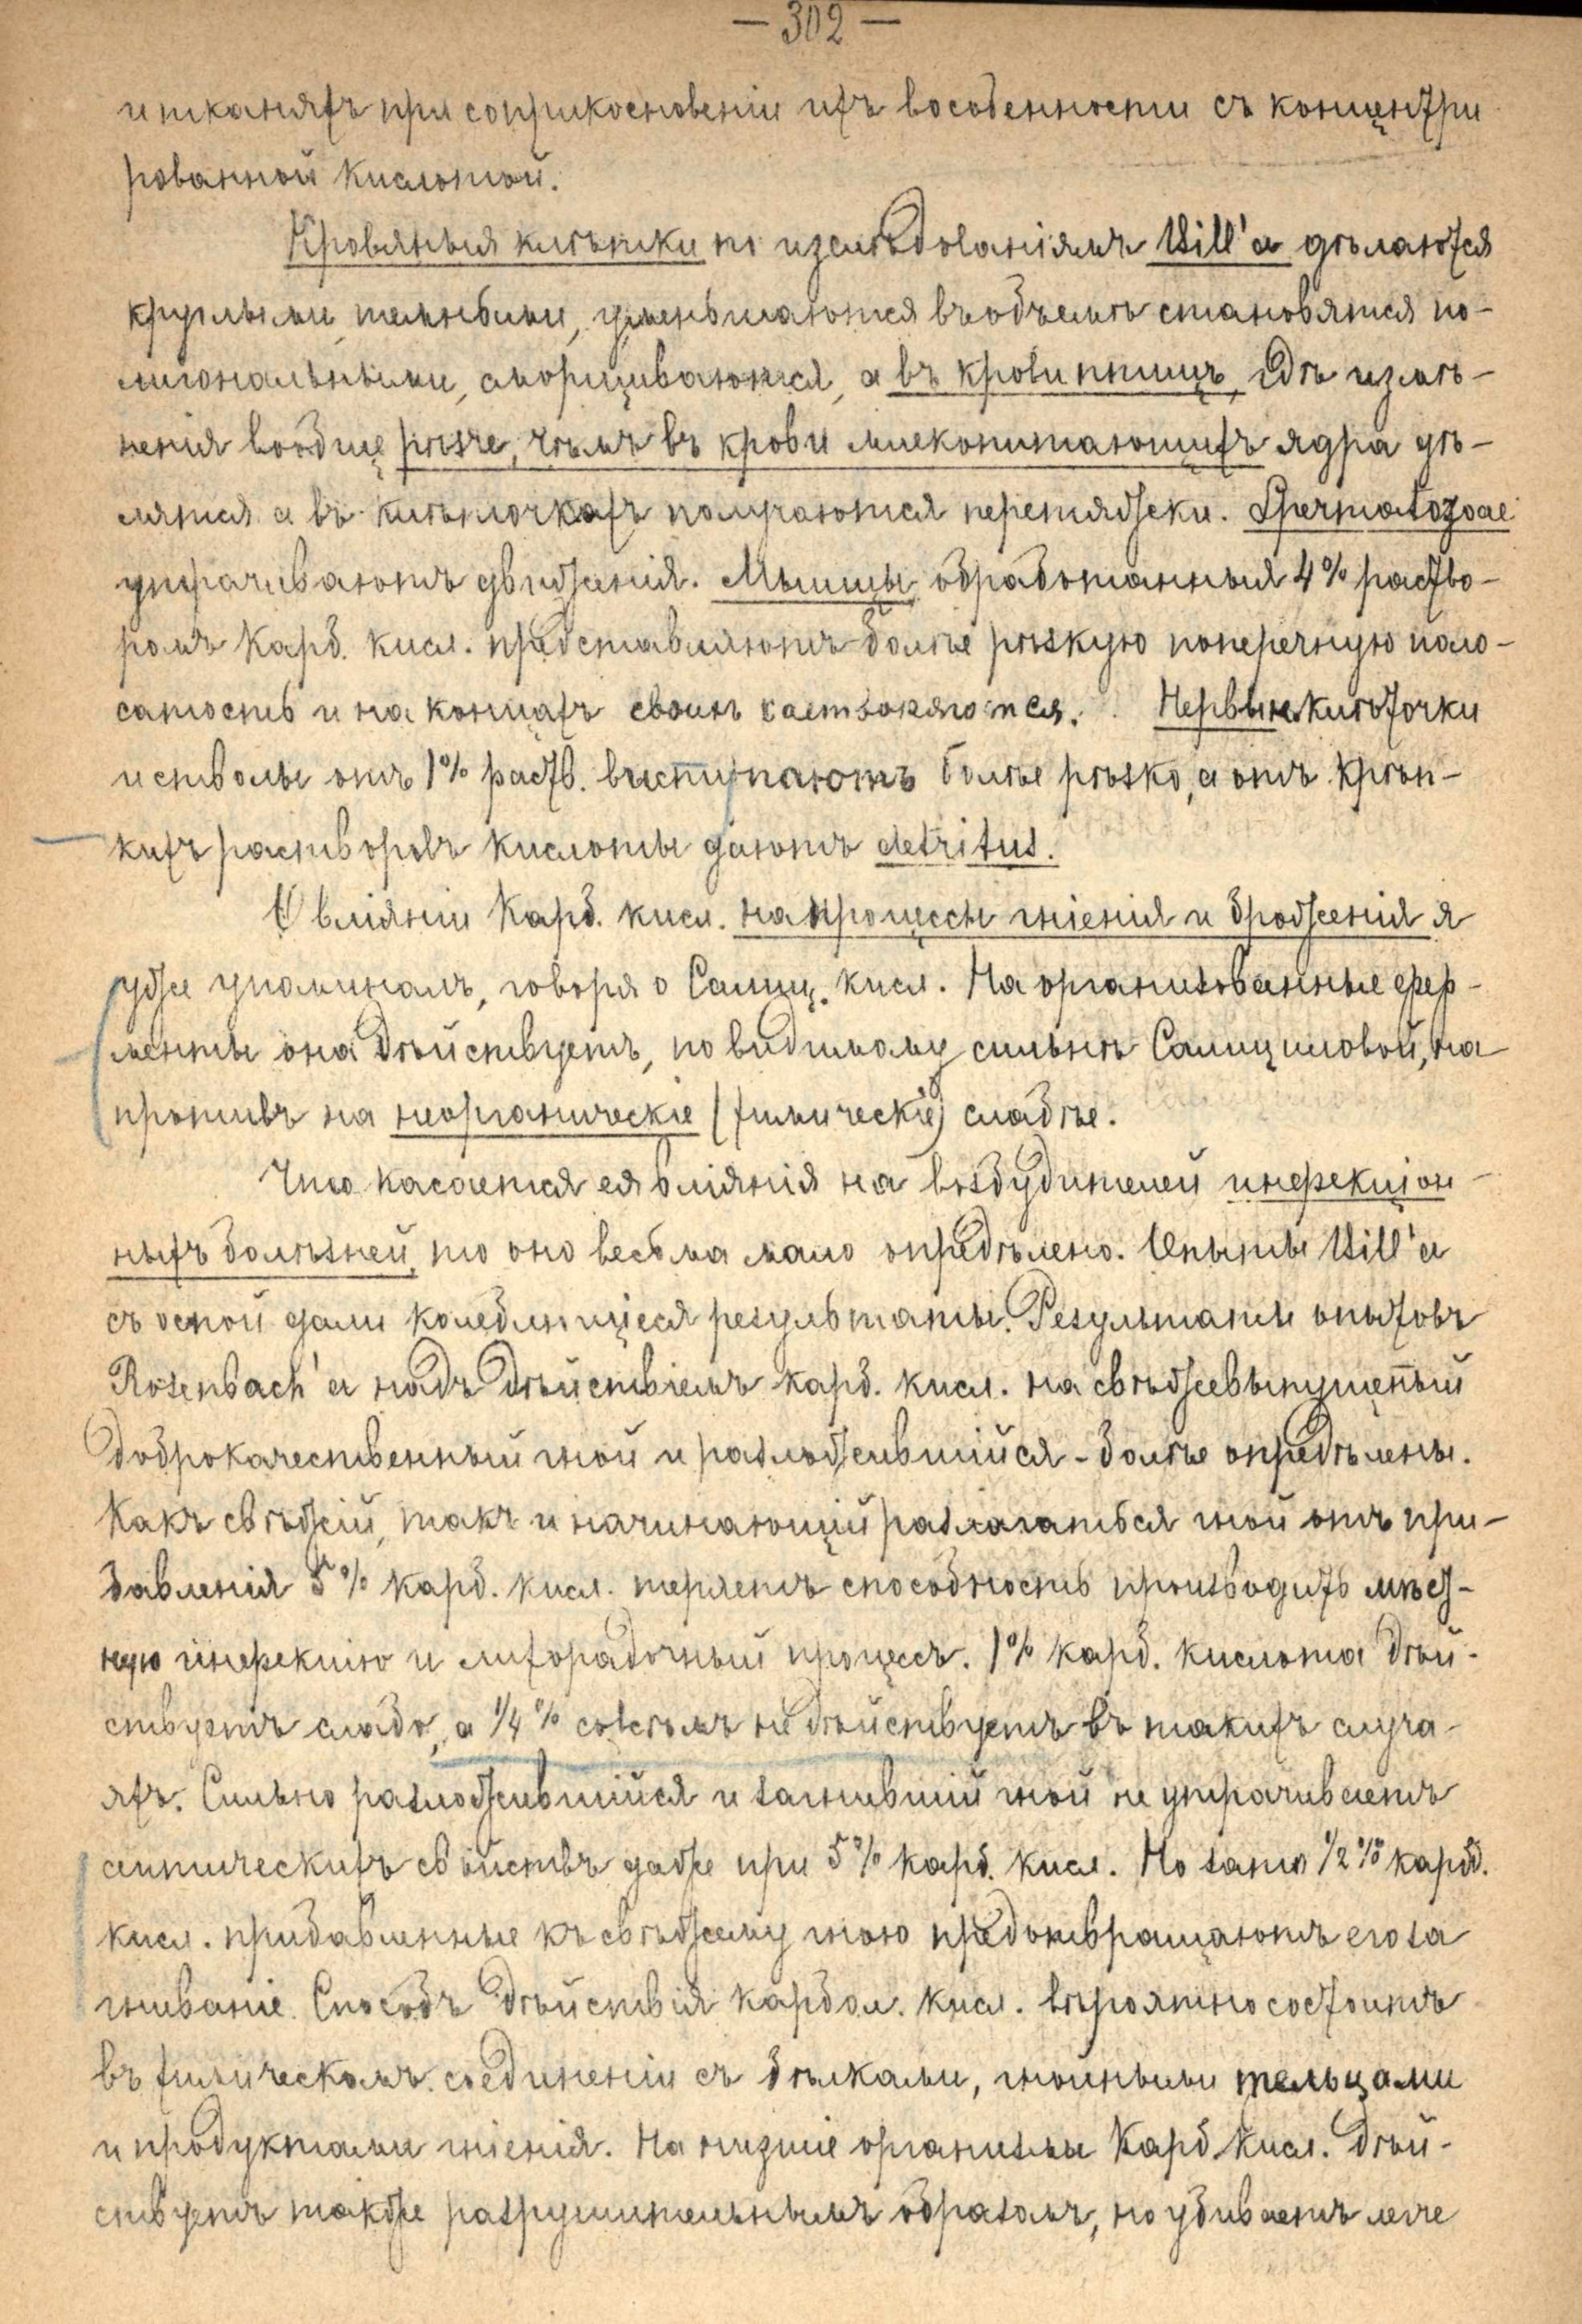 — 302 —
и тканяхъ при соприкосновеніи ихъ въособенности съ концентри
рованной кислотой.
Кровяныя клѣтки по изслѣдованіямъ Hill'a дѣлаются
круглыми, темными, уменьшаются въобъемѣ становятся по-
лигональными, сморщиваются, а въ крови птицъ, гдѣ измѣ-
ненія вообще рѣзче, чѣмъ въ крови млекопитающихъ ядра дѣ-
лятся а въ клѣточкахъ получаются перетяжки. Spermatozoae
утрачиваютъ движенія. Мышцы обработанныя 4% раство-
ромъ Карб. кисл. представляютъ болѣе рѣзкую поперечную поло-
сатость и на концахъ своихъ
Нервные клѣточки
и стволы отъ 1% раств. выступаютъ болѣе рѣзко, а отъ крѣп-
кихъ растворовъ кислоты даютъ detritus.
О вліяніи Карб. кисл. на процессы гніенія и броженія я
уже упоминалъ, говоря о Салиц. кисл. На организованные фер-
менты она дѣйствуетъ, повидимому сильнѣе Салициловой, на
противъ на неорганическіе (химическіе) слабѣе.
Что касается ея вліянія на возбудителей инфекціон
ныхъ болѣзней, то оно весьма мало опредѣлено. Опыты Hill'a
съ оспой дали колеблющіеся результаты. Результаты опытовъ
Rosenbach'a надъ дѣйствіемъ карб. кисл. на свѣжевыпущенный
доброкачественный гной и разложившійся - болѣе опредѣлены.
Какъ свѣжій, такъ и начинающій разлагаться гной отъ при-
бавленія 5% карб. кисл. теряетъ способность производить мѣст-
ную инфекцію и лихорадочный процессъ. 1% карб. кислота дѣй-
ствуетъ слабо, а 1/4% совсѣмъ не дѣйствуетъ въ такихъ случа-
яхъ. Сильно разложившійся и загнившій гной не утрачиваетъ
септическихъ свойствъ даже при 5% карб. кисл. Но зато 1/2% карб.
кисл. прибавленные къ свѣжему гною предотвращаютъ его за
гниваніе. Способъ дѣйствія карбол. кисл. вѣроятно состоитъ
въ химическомъ соединеніи съ бѣлками, гнойными тельцами
и продуктами гніенія. На низшіе организмы Карб. кисл. дѣй-
ствуетъ также разрушительнымъ образомъ, но убиваетъ легче